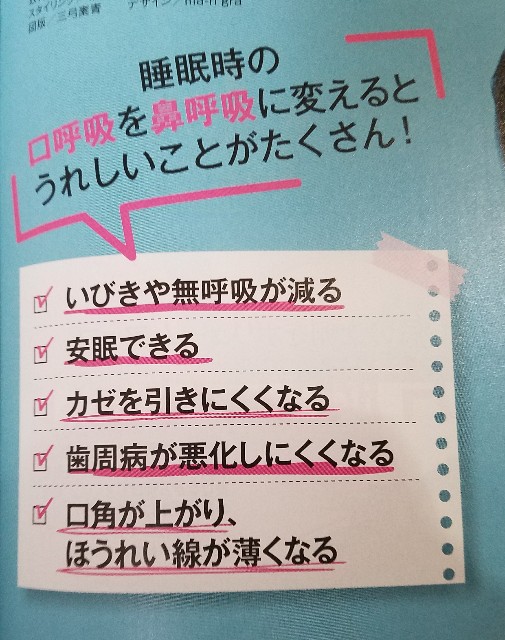 デザイン/ma-h gra
睡眠時の
口呼吸を鼻呼吸に変えると
うれしいことがたくさん!
いびきや無呼吸が減る
安眠できる
カゼを引きにくくなる
歯周病が悪化しにくくなる
口角が上がり、
ほうれい線が薄くなる